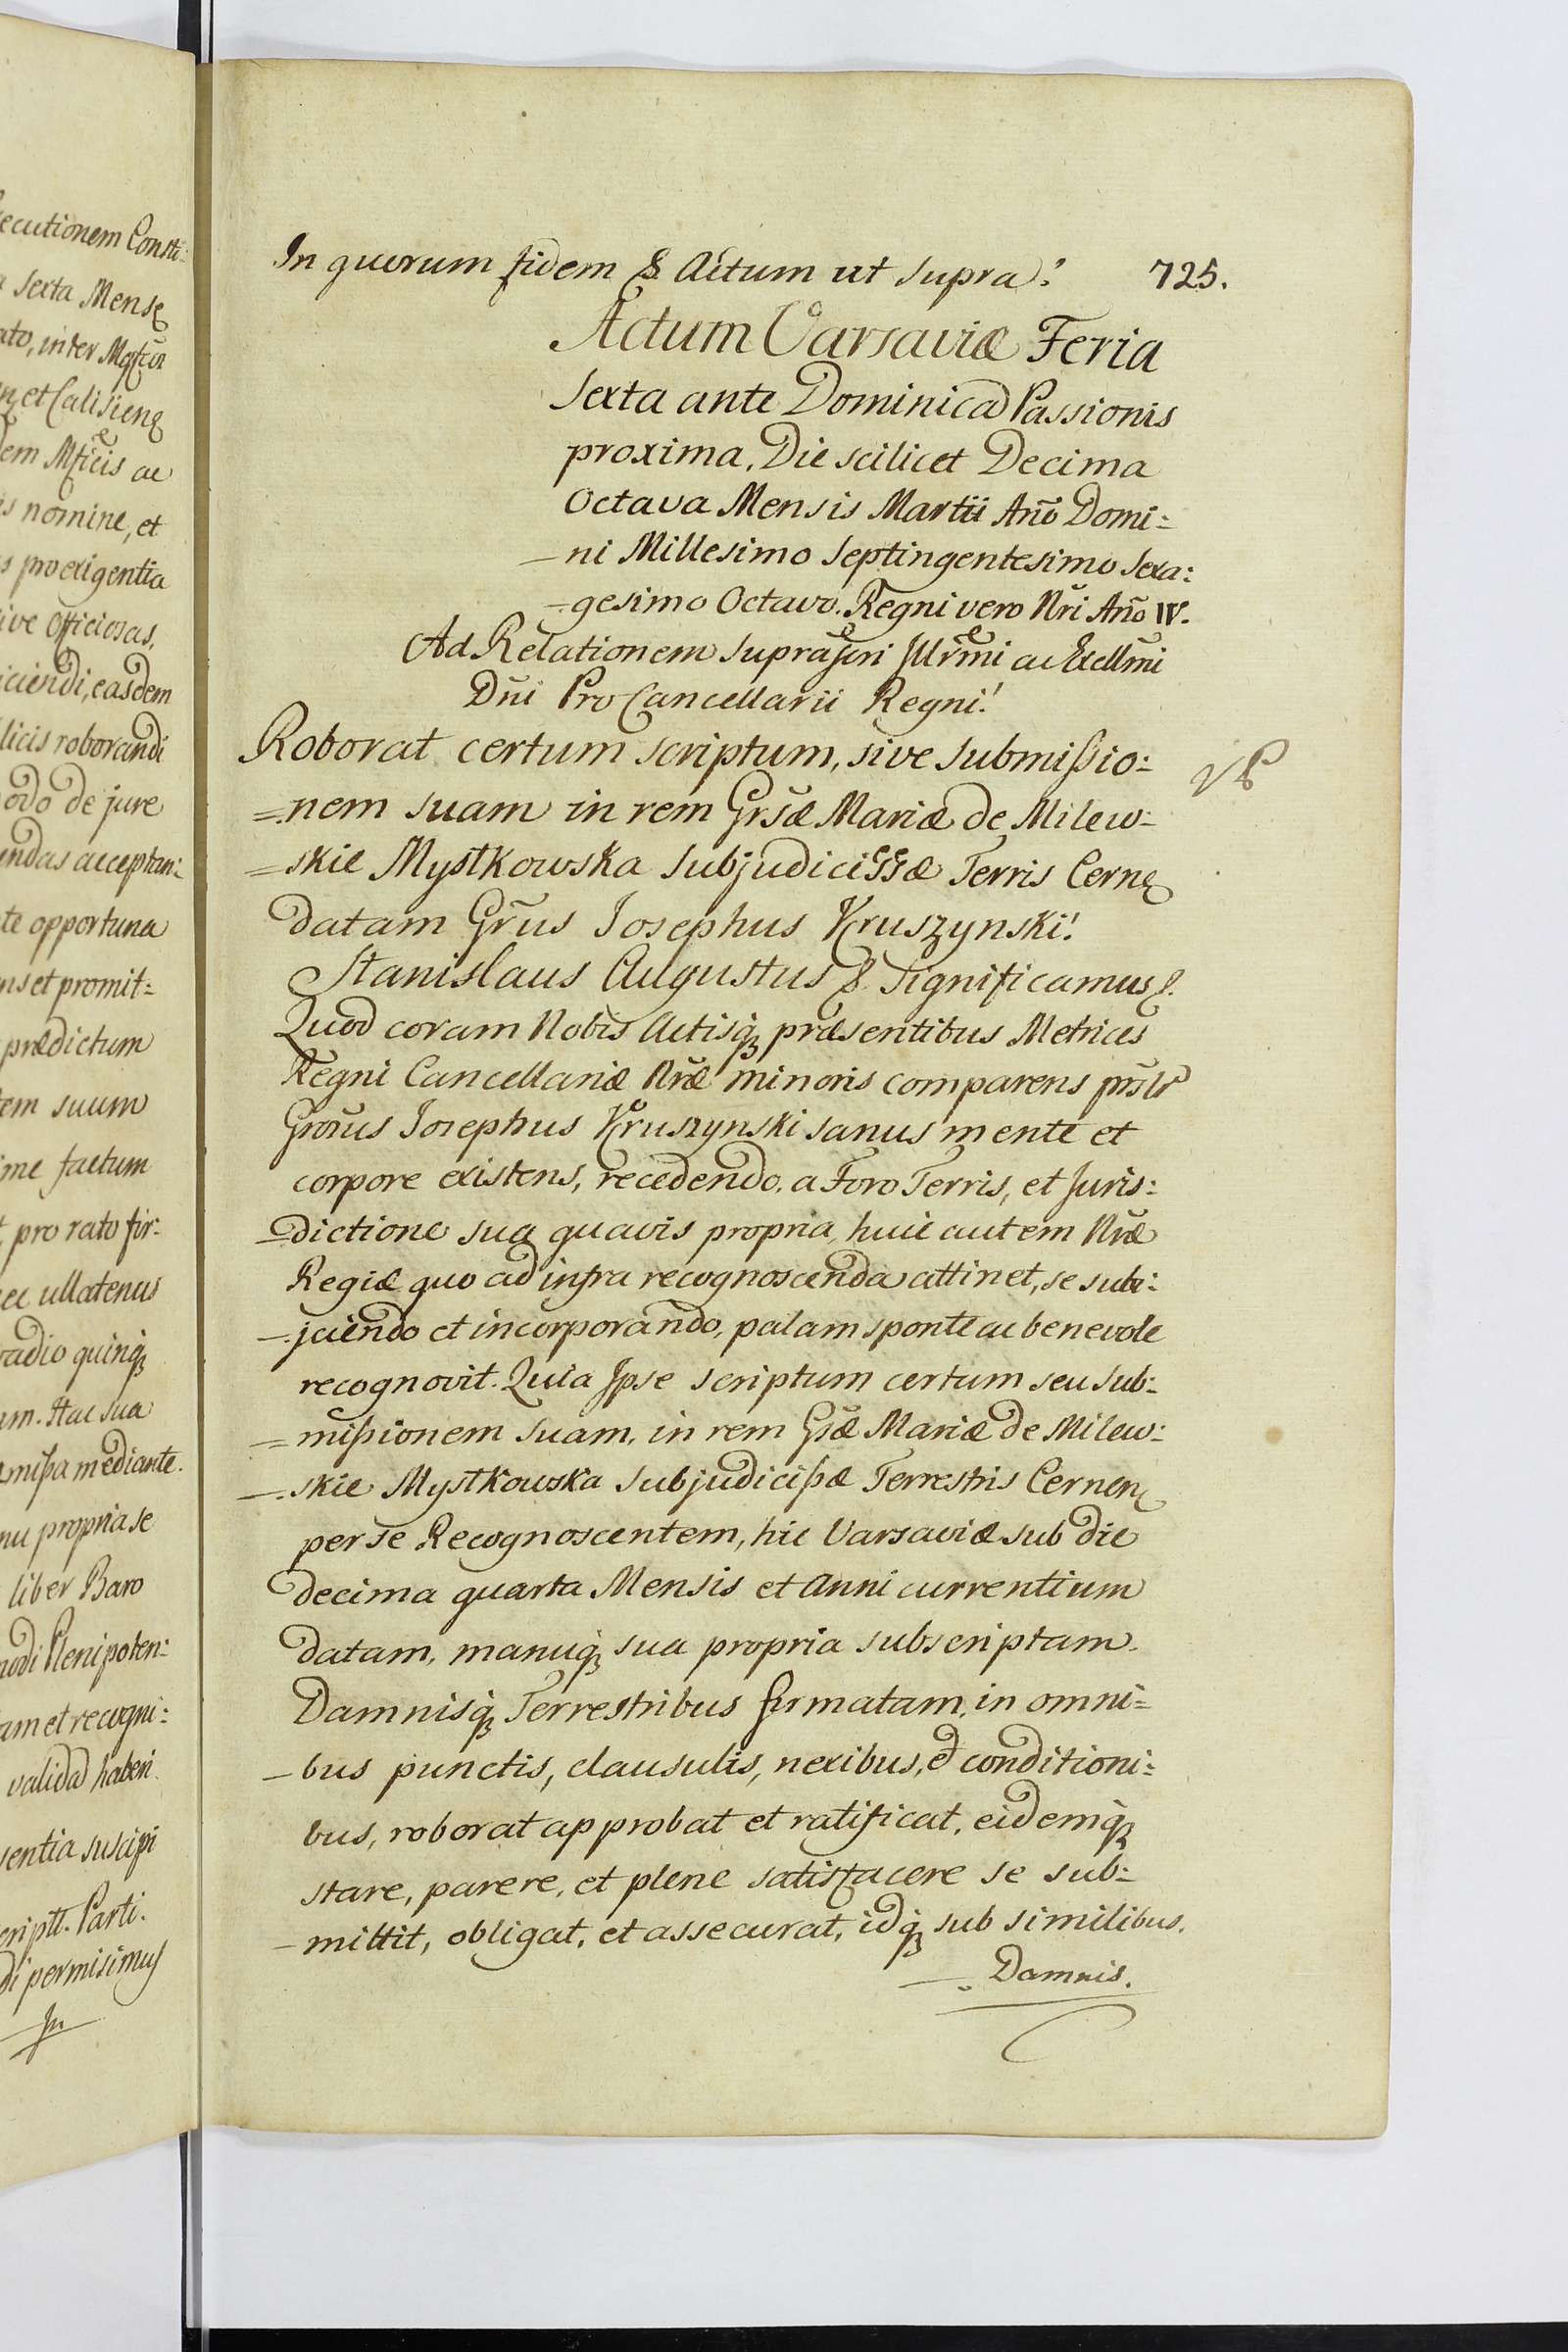 ecutionem Consti:
sexta Mense
ato, inter
et Calisien
dem Mficis ac
nomine, et
s pro exigentia
ive Officiosas,
iciendi, easdem
licis roborandi
odo de jure
endas acceptan:
te opportuna
ns et promit=
prædictum
tem suum
me factum
pro rato fir:
ec ullatenus
adio quinq3
um. Hac sua
mißa mediante.
nu propria se
liber Baro
modi Plenipoten:
am et recogni:
valida haberi
sentia suscipi
cript. Parti.
di permisimus
In
In quorum fidem & Actum ut supra. 725.
Actum Varsaviæ Feria
sexta ante Dominicā Passionis
proxima, Die scilicet Decima
Octava Mensis Martii Anō Domi:
-ni Millesimo Septingentesimo Sexa:
-gesimo Octavo. Regni vero Nri Anō IV.
Ad Relationem suprascri Illrmi ac Excllmi
Dni Pro Cancellarii Regni.
Roborat certum scriptum, sive submißio:
=nem suam in rem Grsæ Mariæ de Milew:
=skie Mystkowska Subjudicissæ Terris Cerne
datam Grus Josephus Kruszynski.
Stanislaus Augustus &. Significamus &.
Quod coram Nobis Actisq3 præsentibus Metrices
Regni Cancellariæ Nræ minoris comparens prslr
Grosus Josephus Kruszynski sanus mente et
corpore existens, recedendo, a Foro Terris, et Juris:
-dictione sua quavis propria, huic autem Nræ
Regiæ quo ad infra recognoscenda attinet, se sub:
-jciendo et incorporando, palam sponte ac benevole
recognovit. Quia Ipse scriptum certum seu sub:
=mißionem suam, in rem Gsæ Mariæ de Milew:
-skie Mystkowska Subjudicißæ Terrestris Cernen
per se Recognoscentem, hic Varsaviæ sub die
decima quarta Mensis et Anni currentium
datam, manuq3 sua propria subscriptam.
Damnisq3 Terrestribus firmatam, in omni=
-bus punctis, clausulis, nexibus, et conditioni:
bus, roborat approbat et ratificat, eidemq3
stare, parere, et plene satisfacere se sub:
-mittit, obligat, et assecurat, idq3 sub similibus.
Damnis.